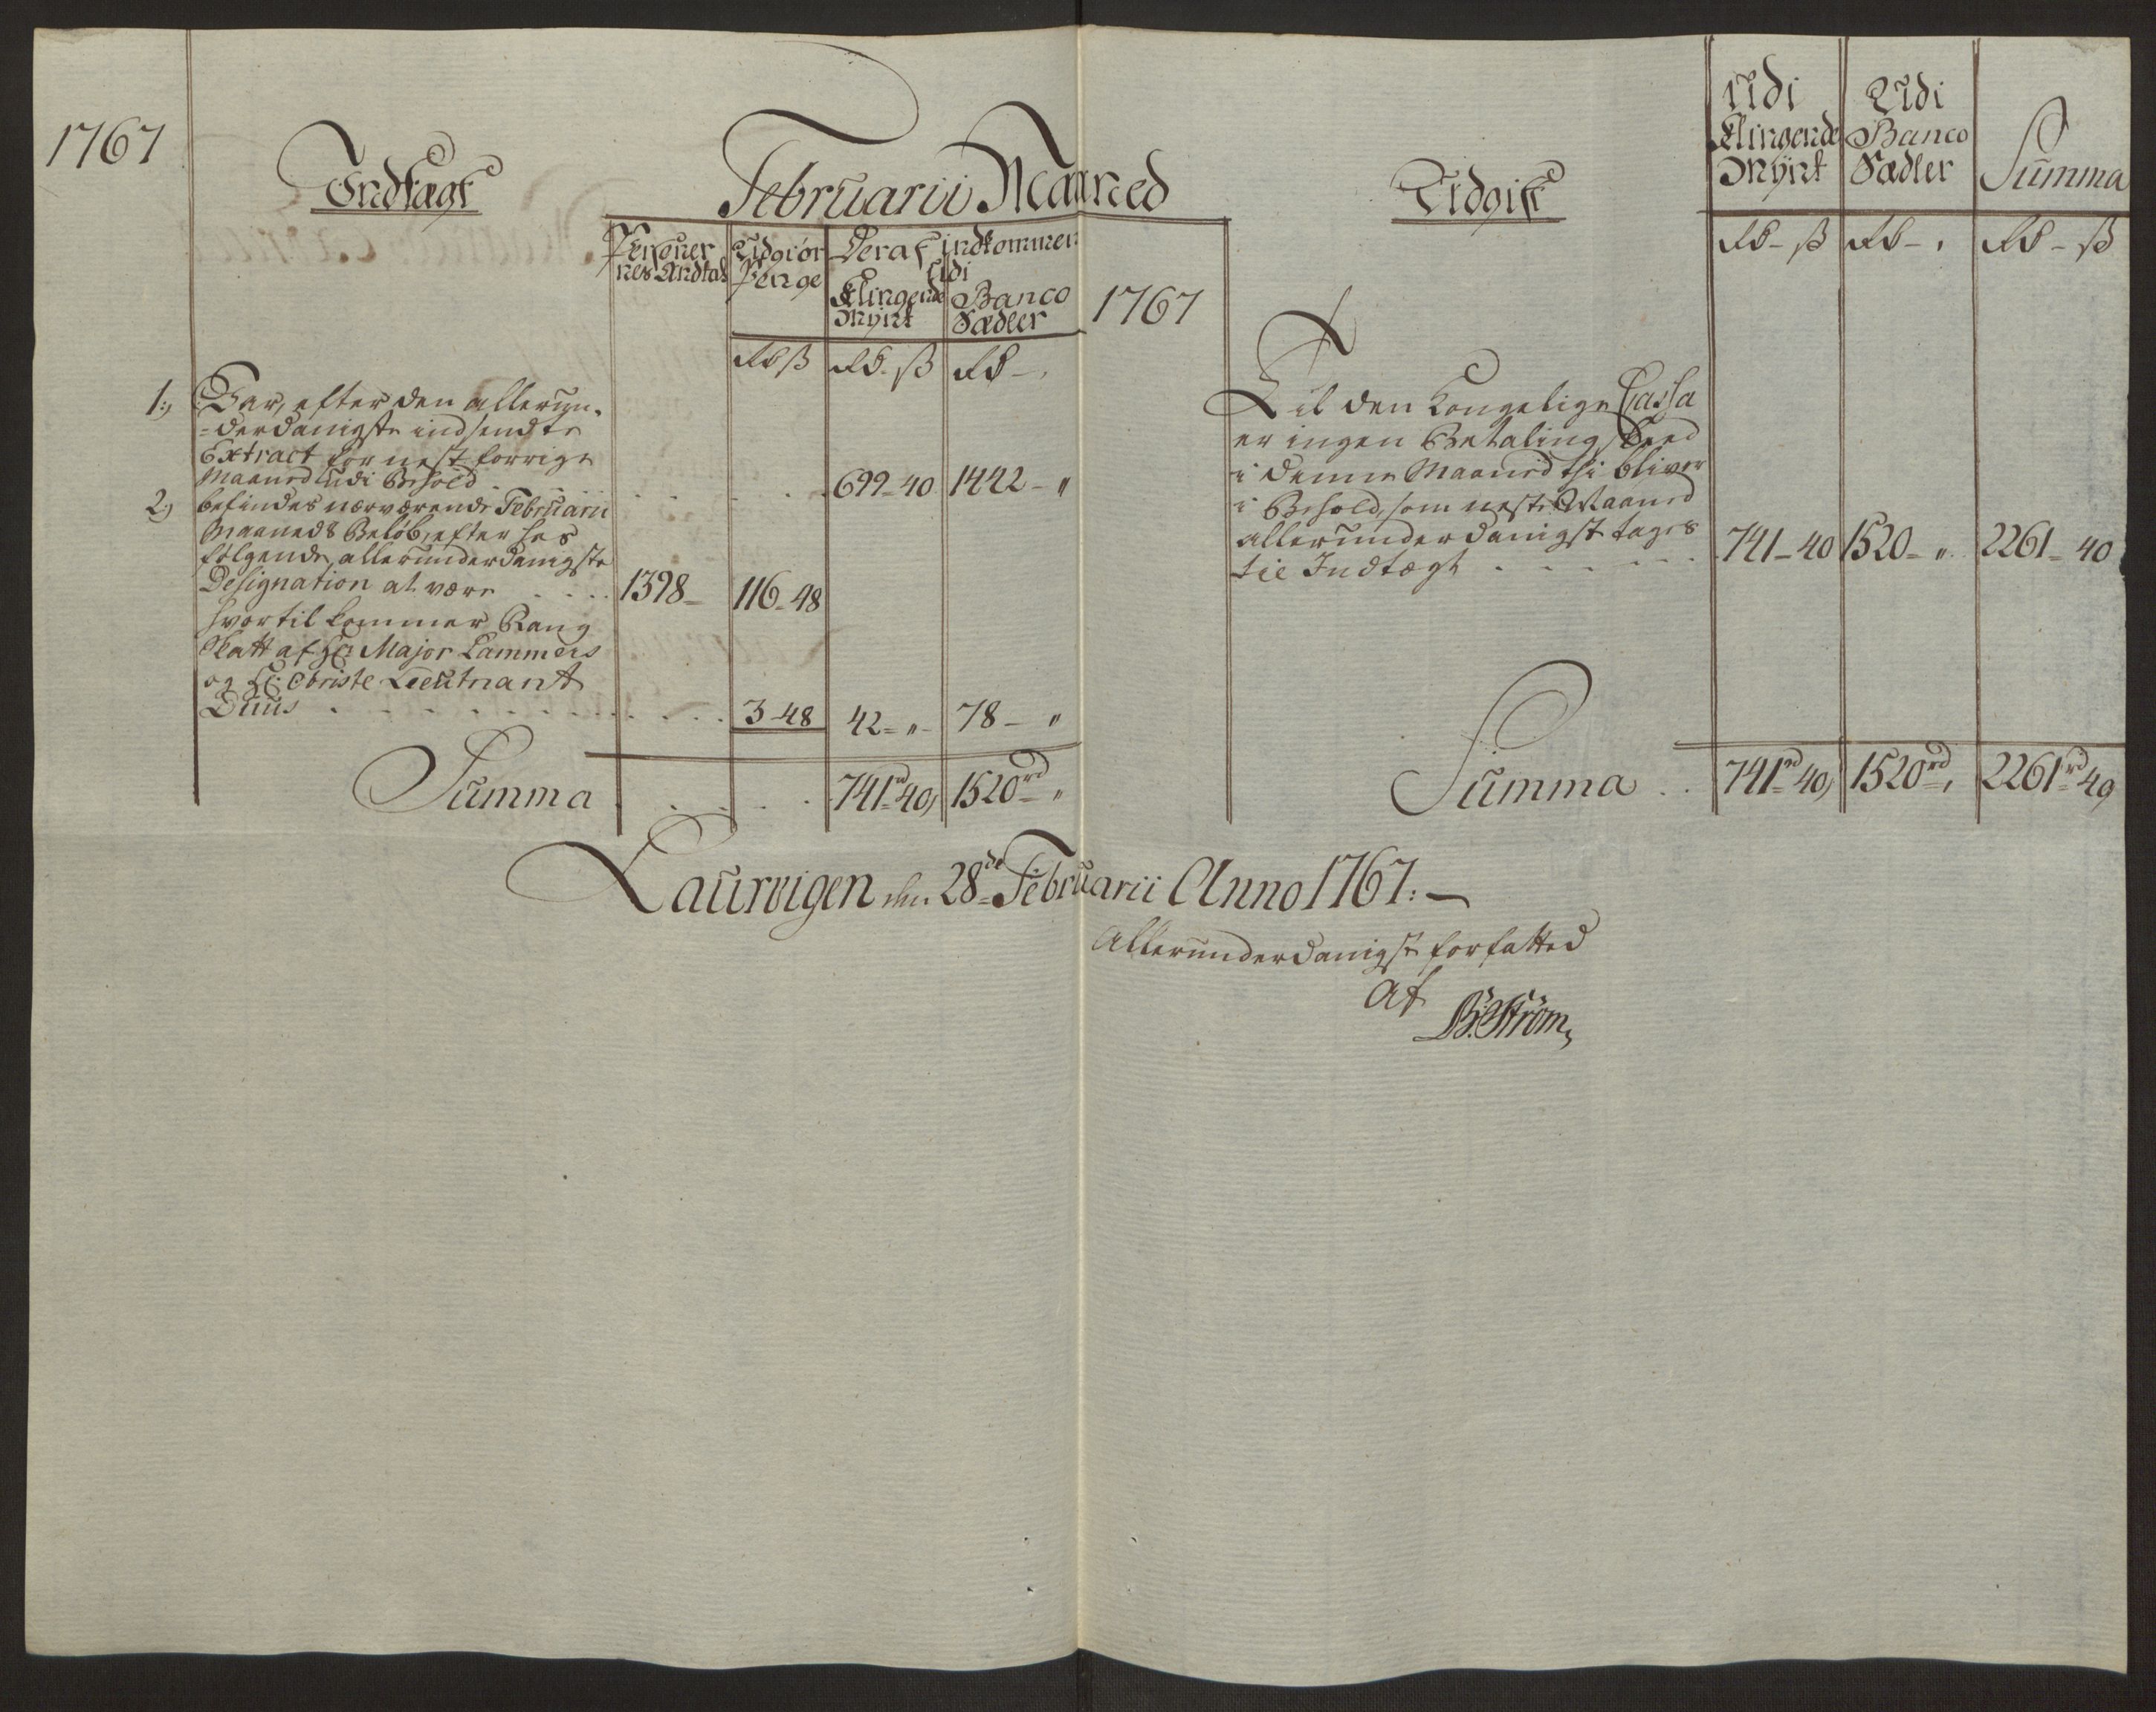 1767
Indtægt
Februarii Maaned
Persener
nes Andtal
Udgiør
Penge
Deraf indkommen
Udi
Klingende
Mynt
Banco
Sædler
Rd ß
Rd - ß
Rd - "
1:) Var, efter den allerun-
=derdanigste indsendte
Extract for nest forrige
Maaned udi Behold . . . . . 699 - 40 1442 - "
2:) befindes nærværende Februarii
Maaneds Beløb, efter hos
følgende, allerunderdanigste
Designation at være . . . . 1398 - 116 - 48
hvortil kommer Rang
Skatt af Hr: Major Lammers
og Hr: Obriste Lieutnant
Duus . . . . . . . . . . 3 - 48 42 - " - 78 - "
Summa . . . . . 741rd 40, 1520rd "
1767
Udgift
Udi
Klingende
Mynt
Udi
Banco
Sædler
Summa
Rd - ß
Rd - "
Rd - ß
Til den Kongelige Cassa
er ingen Betaling skeed
i denne Maaned thi bliver
i Behold, som neste Maaned
allerunderdanigst tages
til Indtægt . . . . . . 741 - 40 1520 - " 2261 - 40
Summa . . 741rd 40, 1520rd, 2261rd 40,
Laurvigen den 28de Februarii Anno 1767: -
Allerunderdanigst forfatted
af
B: Strøm,